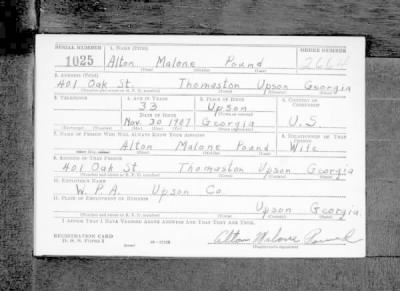 SERIAL NUMBER 1. NAME (Print) ORDER NUMBER
1025 Alton Malone Pound 2664
(First) (Middle) (Last)
2. ADDRESS (Print)
401 Oak St. Thomaston Upson Georgia
3. TELEPHONE 4. AGE IN YEARS 5. PLACE OF BIRTH 6. COUNTRY OF CITIZENSHIP
33 Upson
DATE OF BIRTH
Nov. 30 1907 Georgia U.S.
7. NAME OF PERSON WHO WILL ALWAYS KNOW YOUR ADDRESS 8. RELATIONSHIP OF THAT PERSON
Alton Malone Pound Wife
9. ADDRESS OF THAT PERSON
401 Oak St Thomaston Upson Georgia
10. EMPLOYER'S NAME
W.P.A. Upson Co.
11. PLACE OF EMPLOYMENT OR BUSINESS
Upson Georgia
I AFFIRM THAT I HAVE VERIFIED ABOVE ANSWERS AND THAT THEY ARE TRUE.
REGISTRATION CARD
D. S. S. FORM 1 Alton Malone Pound